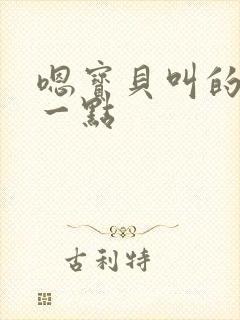 嗯寶貝叫的
一點
古利特